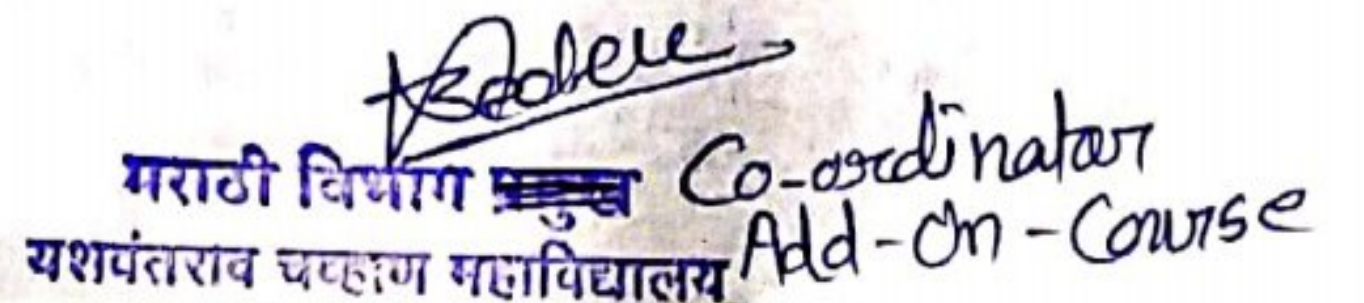 मराठी विभाग प्रमुख Co-ordinator
यशवंतराव चव्हाण महाविद्यालय Add-On-Course